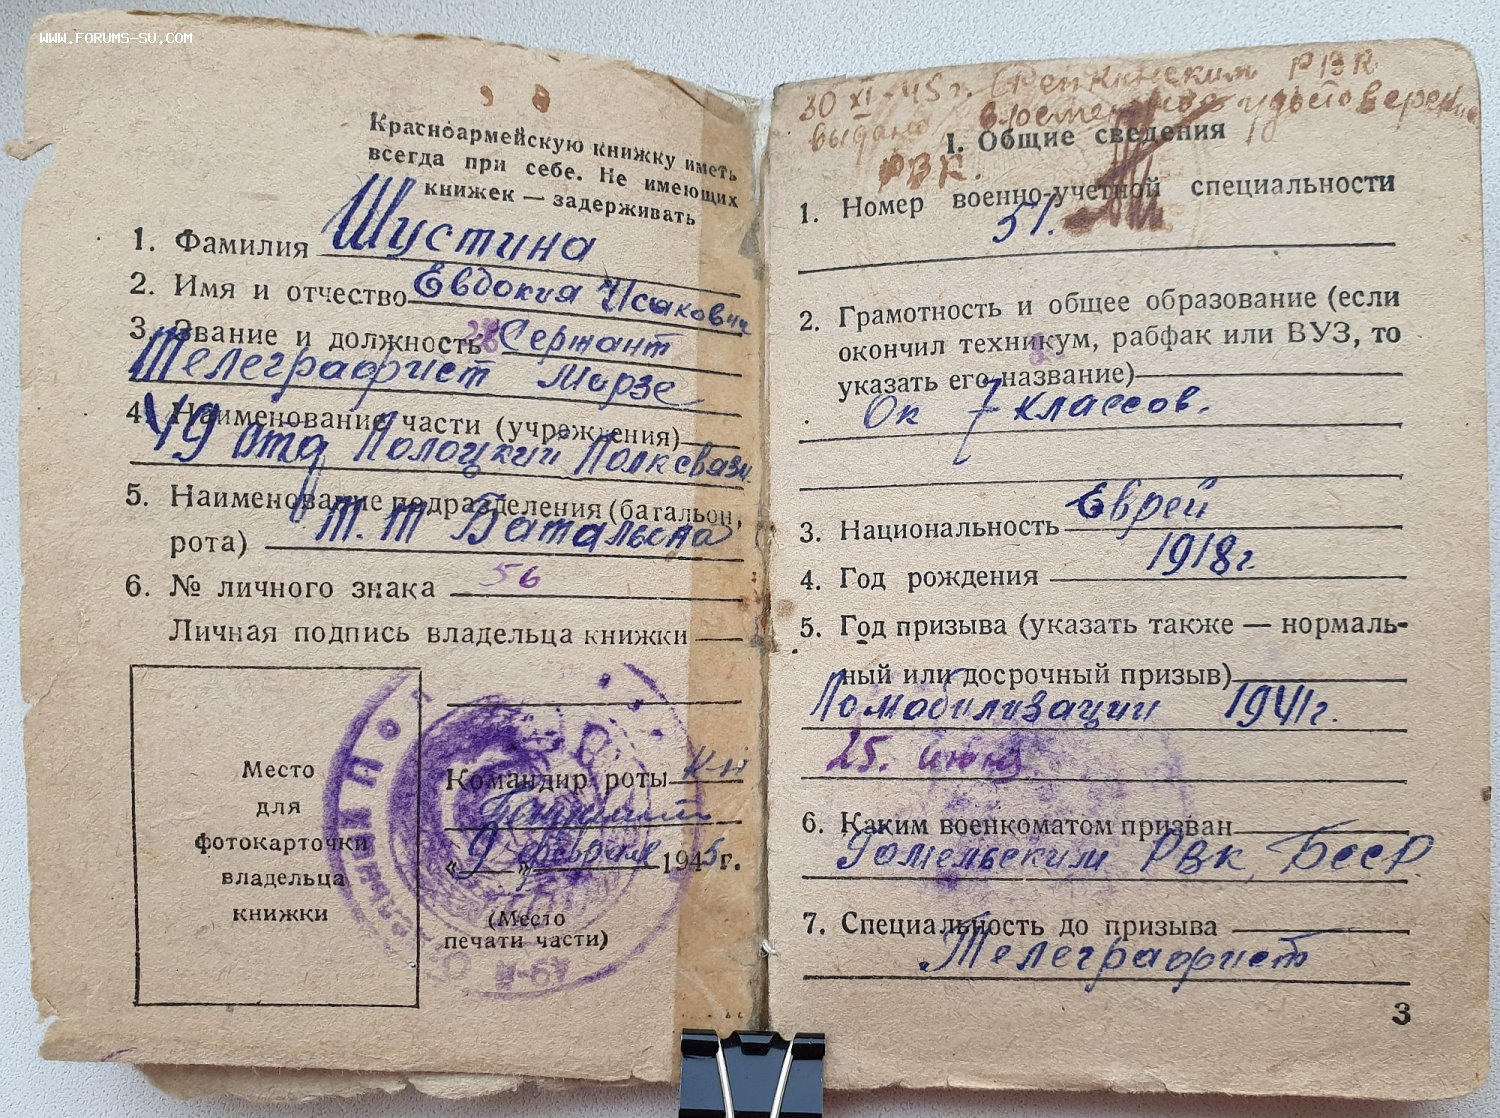 WWW.FORUMS-SU.COM
Красноармейскую книжку иметь
всегда при себе. Не имеющих
книжек — задерживать
1. Фамилия Шустина
2. Имя и отчество Евдокия Исаковн
3. Звание и должность Сержант
Телеграфист Морзе
4. Наименование части (учреждения)
49 отд Полоцкий Полк связи
5. Наименование подразделения (батальон,
рота) Т. Т Батальона
6. № личного знака 56
Личная подпись владельца книжки
Место
для
фотокарточки
владельца
книжки
Командир роты К-н
«9» февраля 1945 г.
(Место
печати части)
30 XI-45 г. РВК
выдано временное удостоверение
РВК.
I. Общие сведения
1. Номер военно-учетной специальности
51.
2. Грамотность и общее образование (если
окончил техникум, рабфак или ВУЗ, то
указать его название)
Ок 7 классов.
3. Национальность Еврей
4. Год рождения 1918 г
5. Год призыва (указать также — нормаль-
ный или досрочный призыв)
По мобилизации 1941 г.
25. июня
6. Каким военкоматом призван
Гомельским РВК БССР.
7. Специальность до призыва
Телеграфист
3